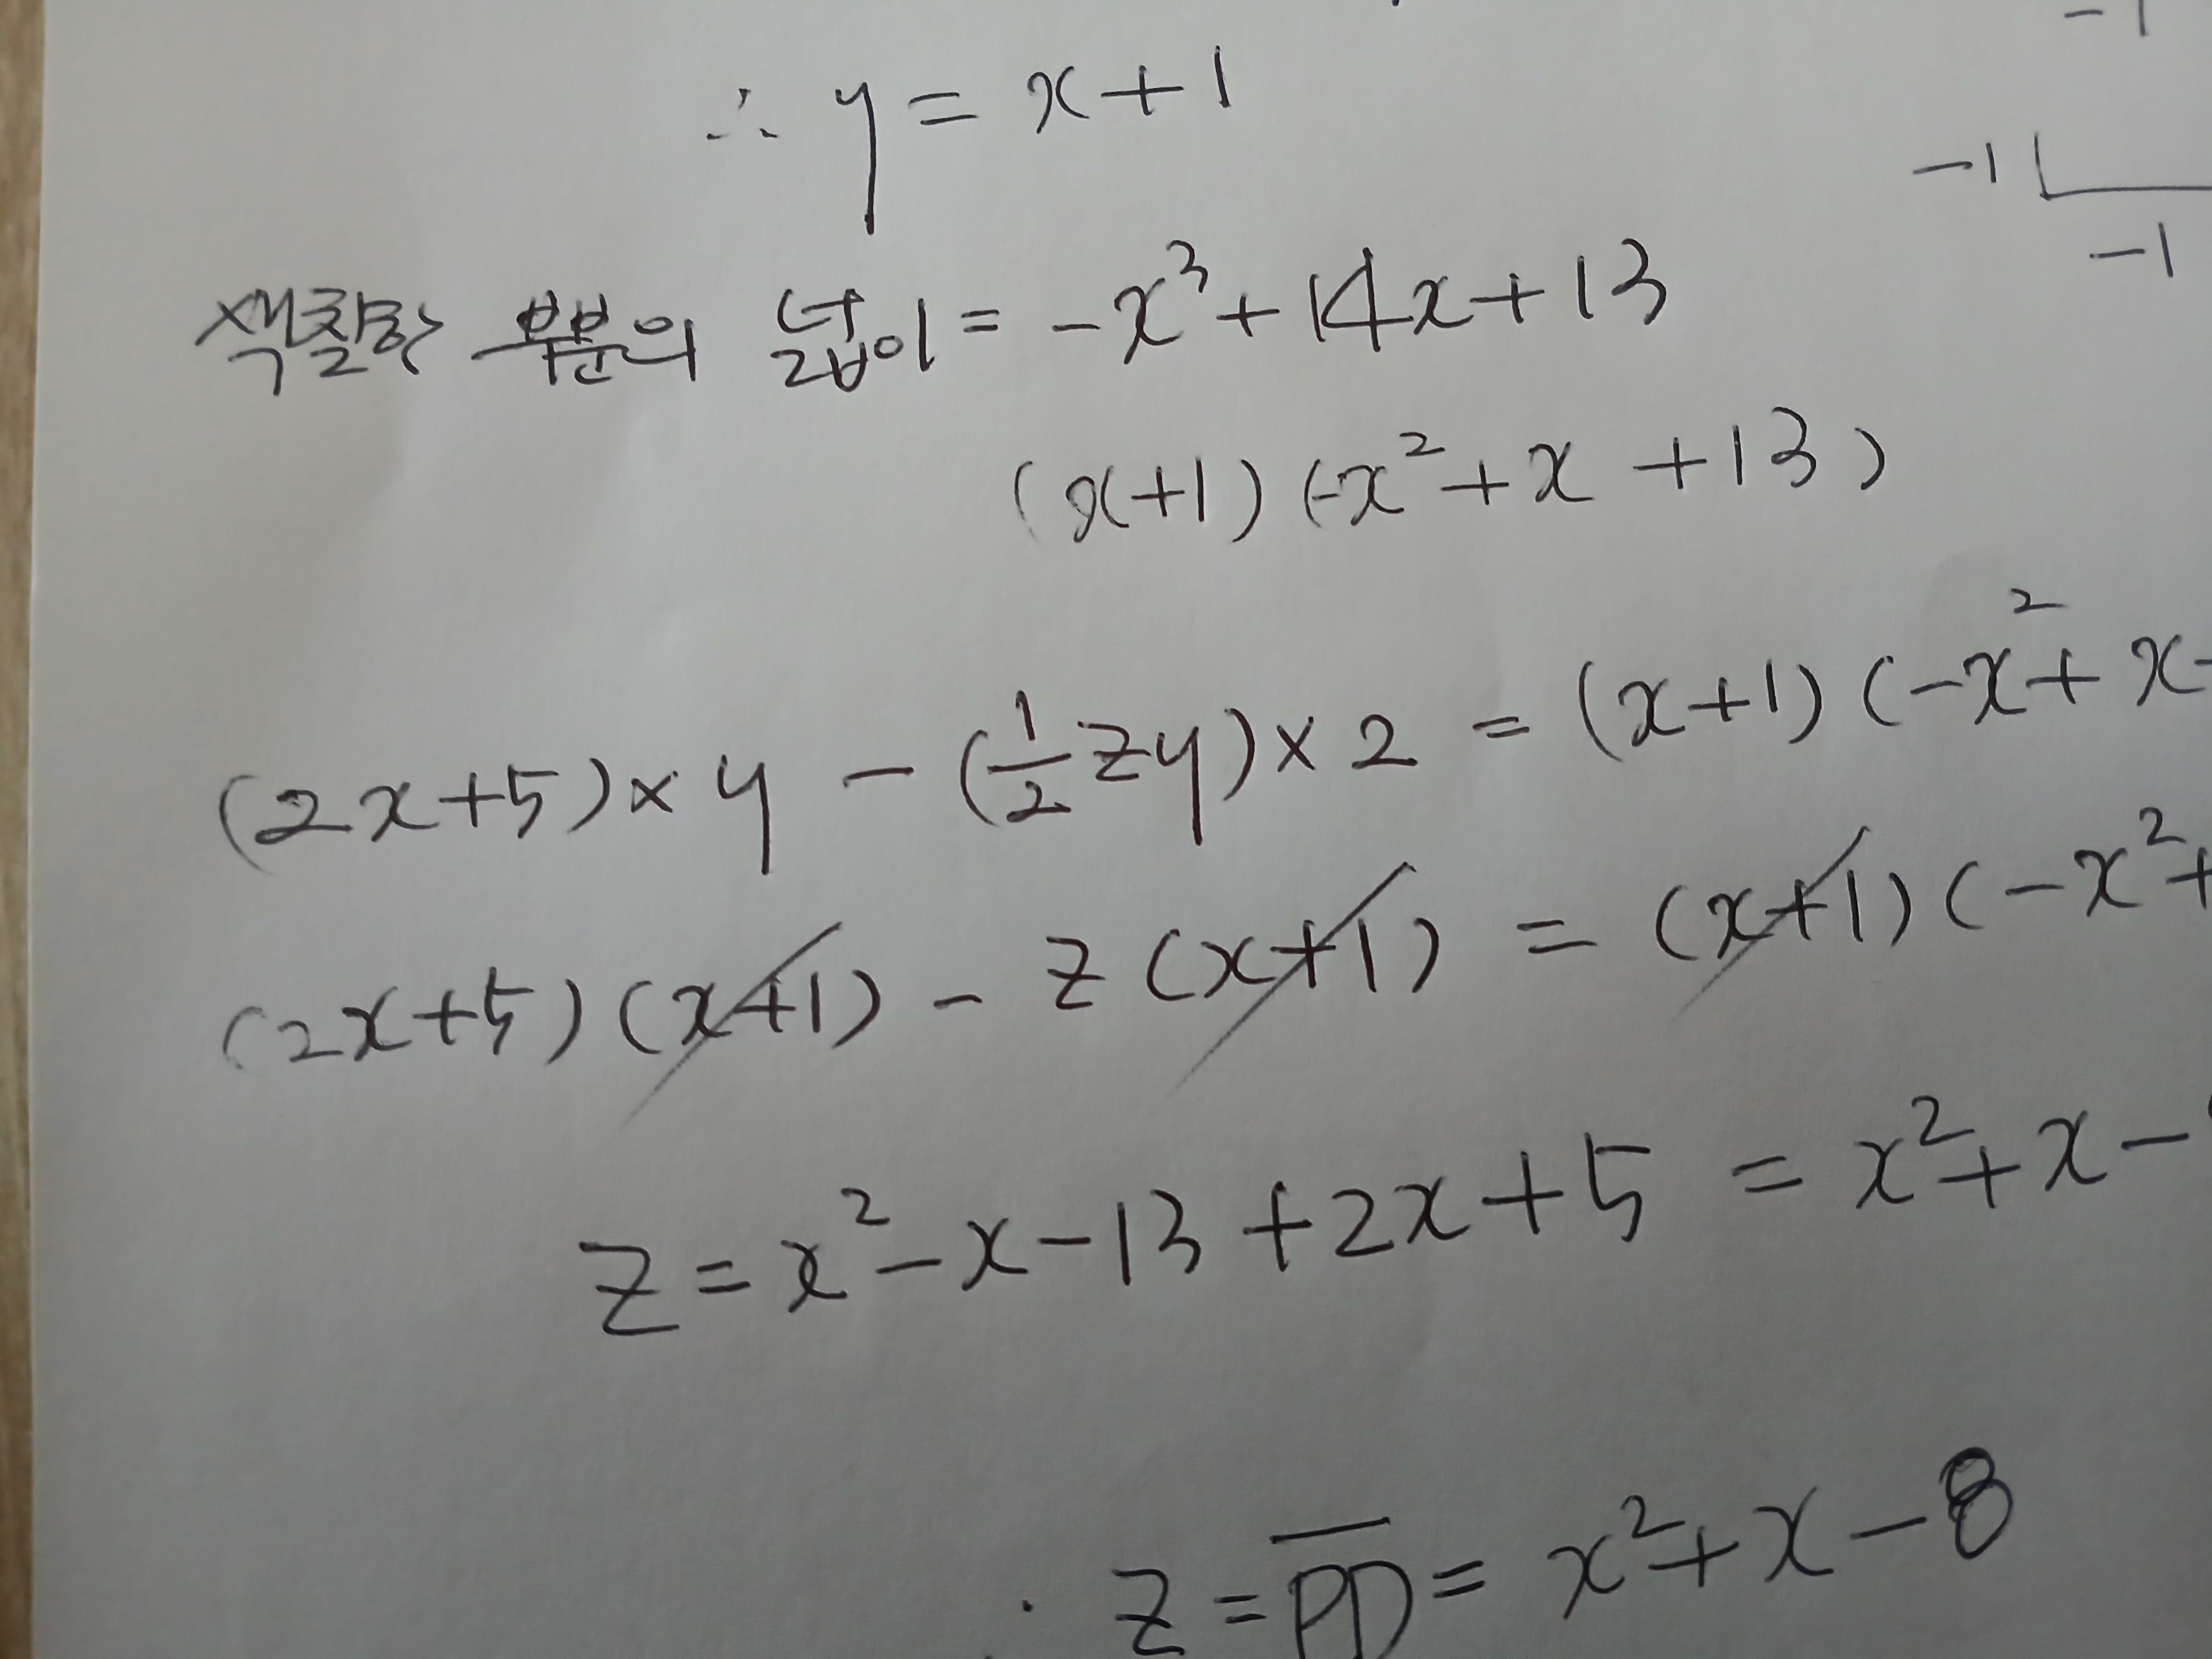 ∴ y = x + 1
-1
-1
-1
색칠한 부분의 넓이 = -x³ + 14x + 13
(x+1)(-x² + x + 13)
(2x+5) × y - (1/2 zy) × 2 = (x+1)(-x² + x
(2x+5)(x+1) - z(x+1) = (x+1)(-x² +
z = x² - x - 13 + 2x + 5 = x² + x -
z = P̅D̅ = x² + x - 8